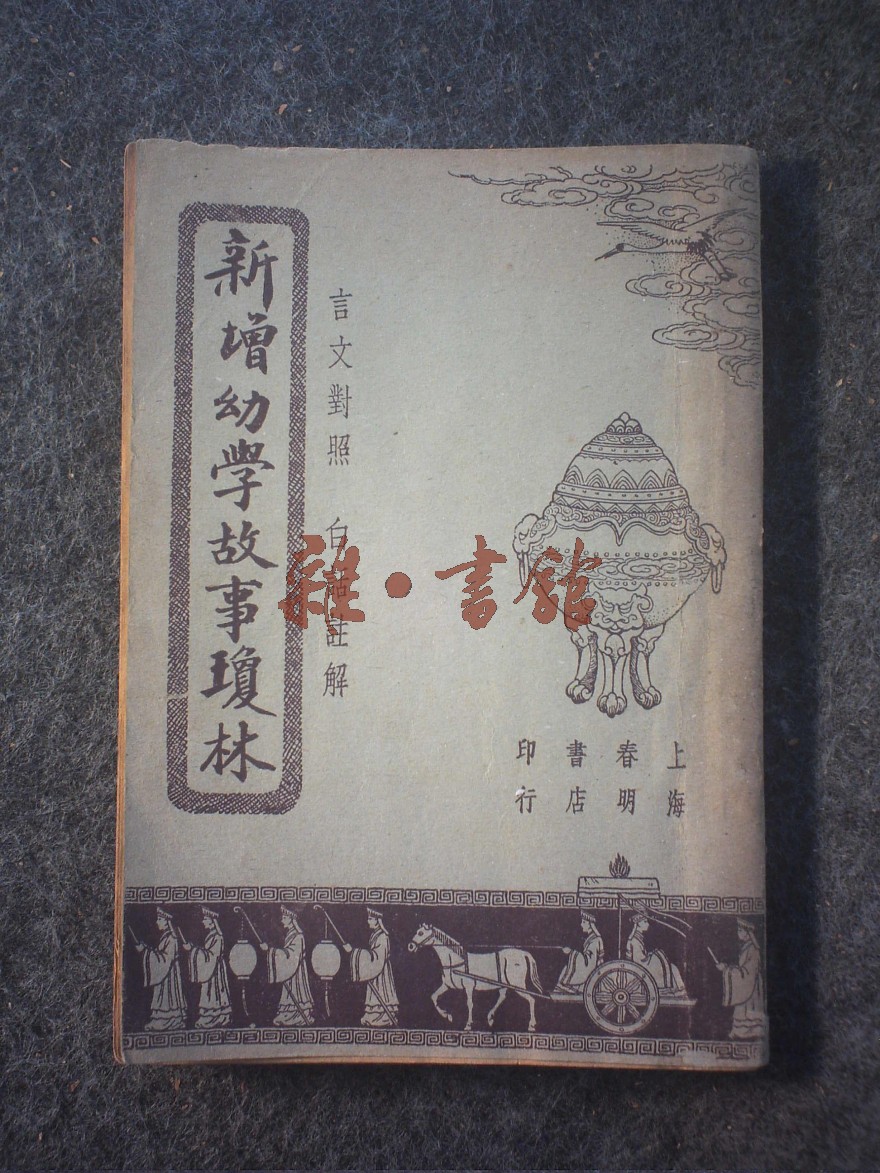 新增幼學故事瓊林
言文對照 白話註解
上海
春明
書店
印行
雜·書舘